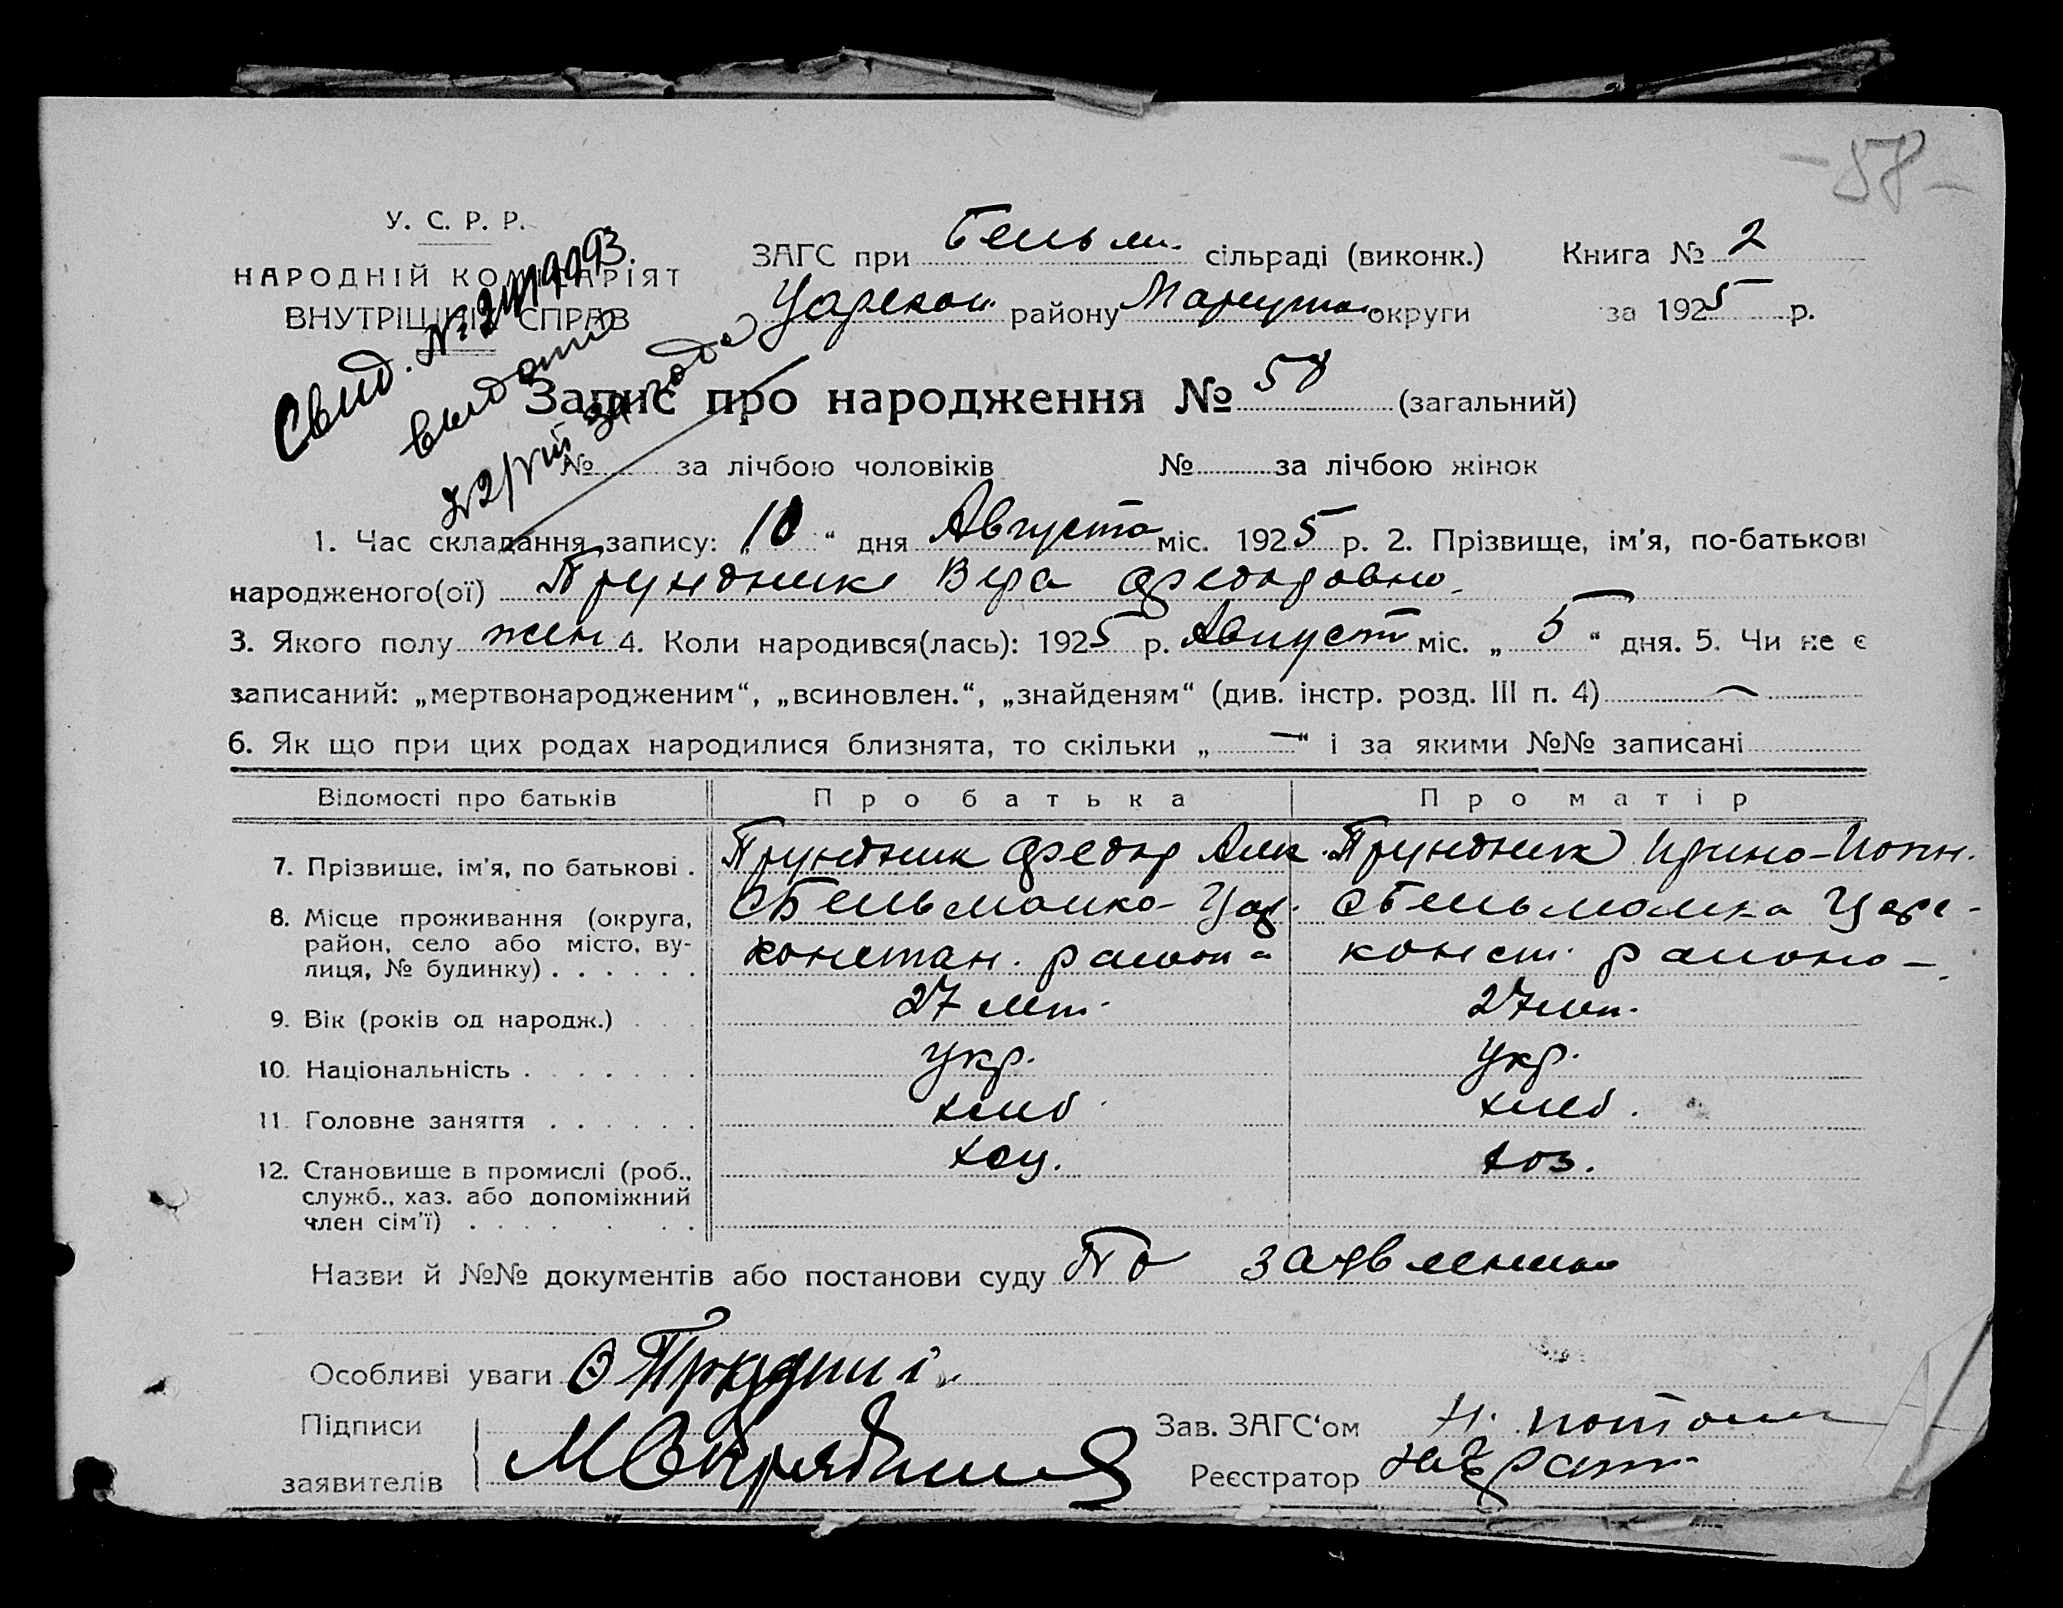 -58-
У. С. Р. Р.
НАРОДНІЙ КОМІСАРІЯТ
ВНУТРІШНІХ СПРАВ
Свид. №
выдано
ЗАГС при Бельм. сільраді (виконк.) Книга № 2
Царекон. району Мариупол. округи за 1925 р.
Запис про народження № 58 (загальний)
№ за лічбою чоловіків № за лічбою жінок
1. Час складання запису: „10“ дня Августа міс. 1925 р. 2. Прізвище, ім'я, по-батькові
народженого(ої) Трундник Вера Федоровна
3. Якого полу жен 4. Коли народився(лась): 1925 р. Август міс. „5“ дня. 5. Чи не є
записаний: „мертвонародженим“, „всиновлен.“, „знайденям“ (див. інстр. розд. III п. 4) —
6. Як що при цих родах народилися близнята, то скільки „—“ і за якими №№ записані
Відомості про батьків Про батька Про матір
7. Прізвище, ім'я, по батькові . Трундник Федор Трундник Ирина
8. Місце проживання (округа, район, село або місто, вулиця, № будинку) . . . . . . С Бельманка Цар. констан. района С Бельманка Царе-конст. района
9. Вік (років од народж.) . . . 27 лет. 27 лет.
10. Національність . . . . . . . Укр. Укр.
11. Головне заняття . . . . . . хлеб. хлеб.
12. Становище в промислі (роб., служб., хаз. або допоміжний член сім'ї) . . . . . . . хоз. хоз.
Назви й №№ документів або постанови суду По заявлению
Особливі уваги
Підписи
заявителів
Зав. ЗАГС'ом
Реєстратор